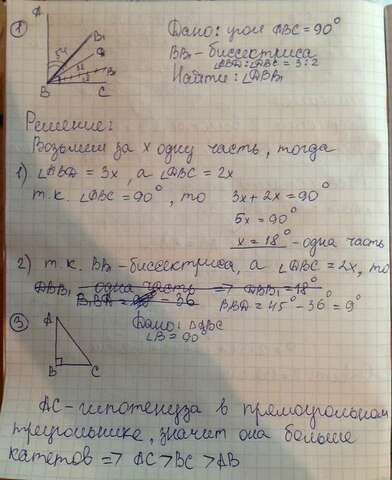 1 A Дано: угол ABC = 90°
B B₁ C
BB₁ - биссектриса
∠ABD : ∠DBC = 3:2
Найти: ∠DBB₁
Решение:
Возьмём за x одну часть, тогда
1) ∠ABD = 3x, а ∠DBC = 2x
т.к. ∠ABC = 90°, то 3x + 2x = 90°
5x = 90°
x = 18° - одна часть
2) т.к. BB₁ - биссектриса, а ∠DBC = 2x, то
DBB₁ одна часть => DBB₁ = 18°
B₁BD = 90° - 36 B₁BD = 45° - 36° = 9°
3 A Дано: △ABC
∠B = 90°
B C
AC - гипотенуза в прямоугольном
треугольнике, значит она больше
катетов => AC > BC > AB